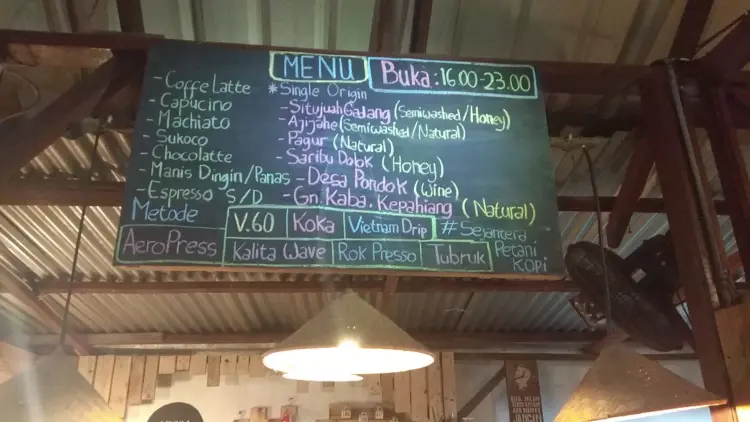 MENU
Buka: 16.00-23.00
- Coffe Latte
- Capucino
- Machiato
- Sukoco
- Chocolatte
- Manis Dingin/Panas
- Espresso S/D
*Single Origin
- Situjuah Gadang (Semiwashed/Honey)
- Ajijahe (Semiwashed/Natural)
- Pagur (Natural)
- Saribu Dolok (Honey)
- Desa Pondok (Wine)
- Gn. Kaba, Kepahiang (Natural)
Metode
AeroPress
V.60
Koka
Vietnam Drip
Kalita Wave
Rok Presso
Tubruk
#Sejahtera
Petani
KOPI